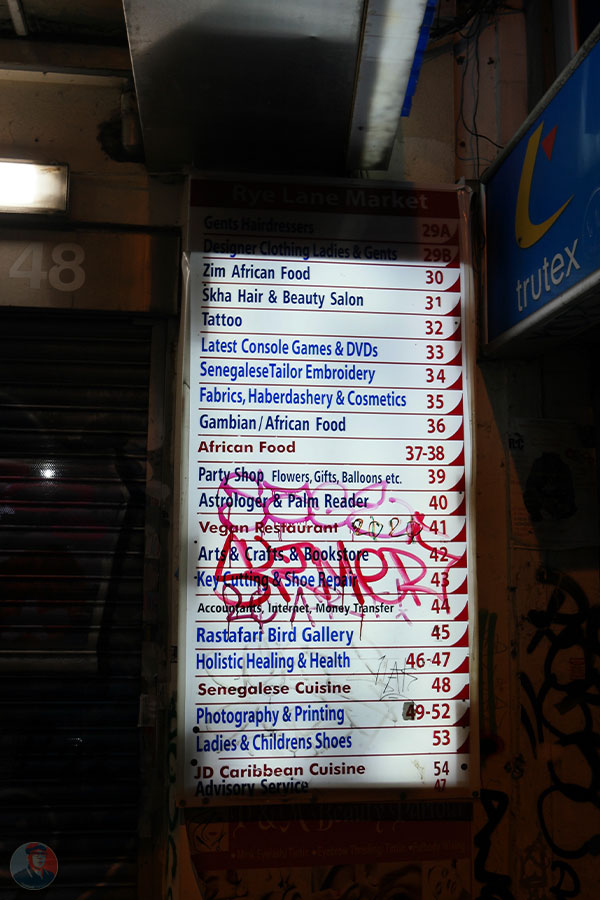 Rye Lane Market
Gents Hairdressers 29A
Designer Clothing Ladies & Gents 29B
Zim African Food 30
Skha Hair & Beauty Salon 31
Tattoo 32
Latest Console Games & DVDs 33
SenegaleseTailor Embroidery 34
Fabrics, Haberdashery & Cosmetics 35
Gambian/African Food 36
African Food 37-38
Party Shop Flowers, Gifts, Balloons etc. 39
Astrologer & Palm Reader 40
Vegan Restaurant 41
Arts & Crafts & Bookstore 42
Key Cutting & Shoe Repair 43
Accountants, Internet, Money Transfer 44
Rastafari Bird Gallery 45
Holistic Healing & Health 46-47
Senegalese Cuisine 48
Photography & Printing 49-52
Ladies & Childrens Shoes 53
JD Caribbean Cuisine 54
Advisory Service 47
48
trutex